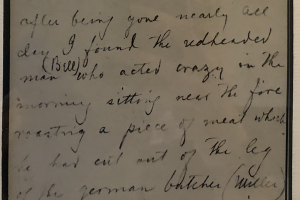 after being gone nearly all
day I found the redheaded
(Bell)
man who acted crazy in the
morning sitting near the fire
roasting a piece of meat which
he had cut out of the leg
of the german butcher (Miller)